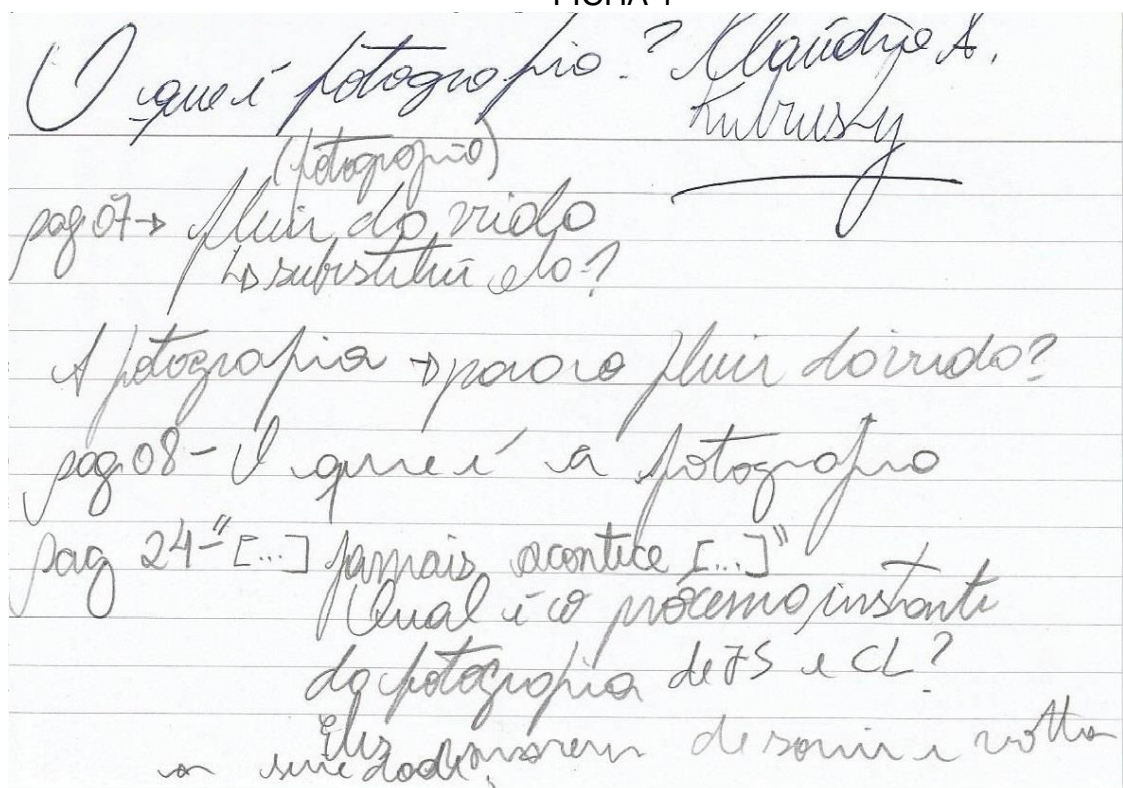 O que é fotografia? Claúdio A.
Kubrusky
(fotografia)
pag 07→ fluir da vida
↳ substitui ela?
A fotografia → para o fluir da vida?
pag 08 - O que é a fotografia
pag 24 - "[...] jamais acontece [...]"
Qual é o próximo instante
da fotografia de JS e CL?
Eles param de sorrir e volta
a seriedade?